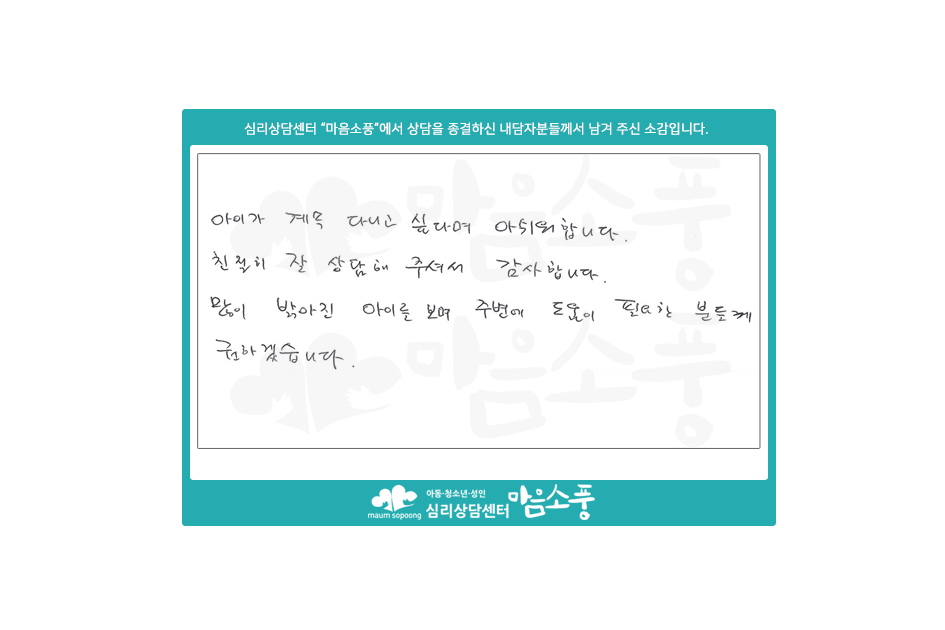 심리상담센터 "마음소풍"에서 상담을 종결하신 내담자분들께서 남겨 주신 소감입니다.
아이가 계속 다니고 싶다며 아쉬워합니다.
친절히 잘 상담해 주셔서 감사합니다.
많이 밝아진 아이를 보며 주변에 도움이 필요한 분들께
권하겠습니다.
마음소풍
마음소풍
아동·청소년·성인
maum sopoong 심리상담센터 마음소풍